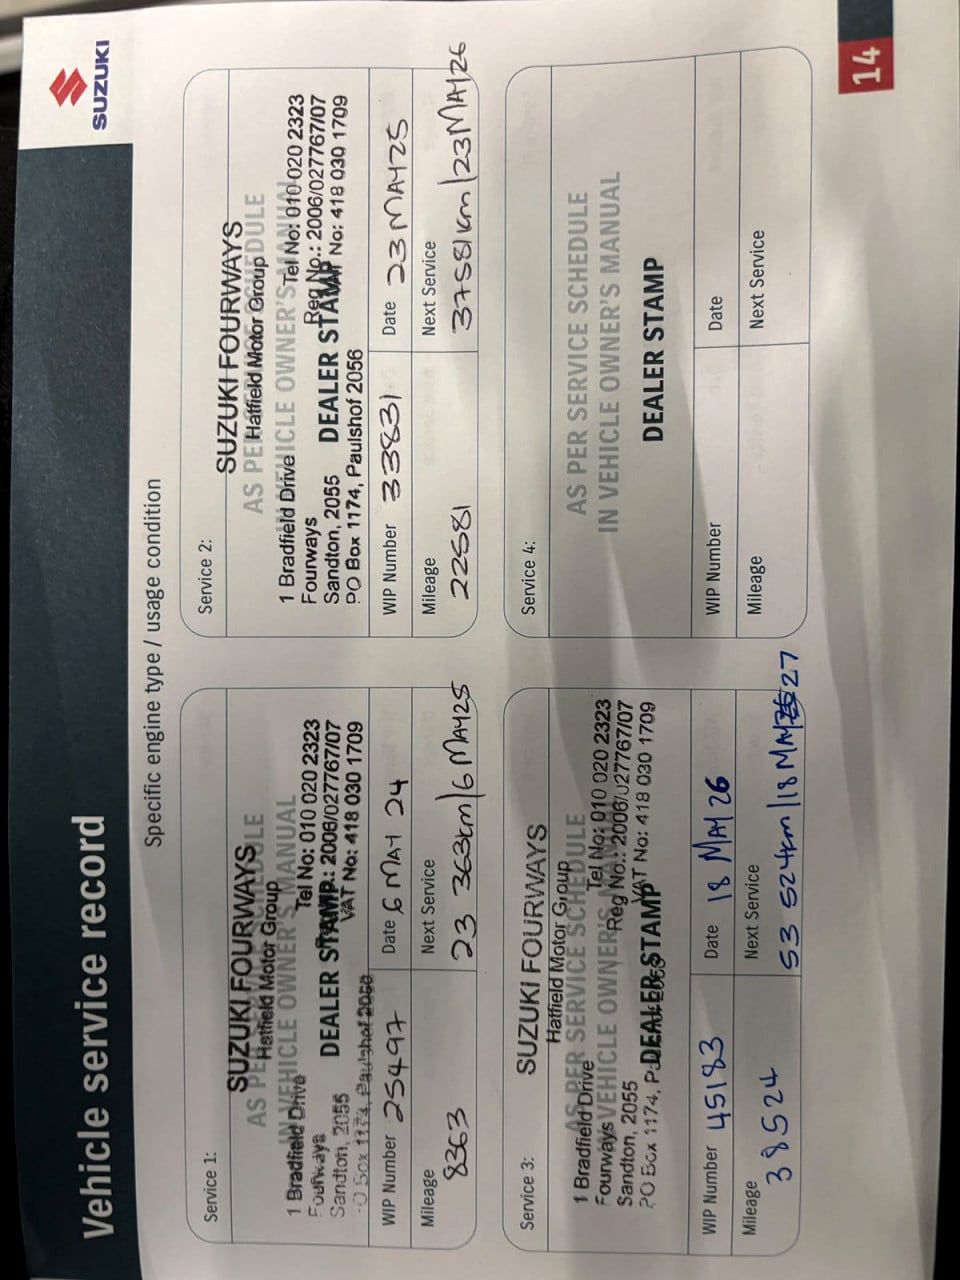 Vehicle service record
SUZUKI
Specific engine type / usage condition
Service 1:
SUZUKI FOURWAYS
AS PER SERVICE SCHEDULE
Hatfield Motor Group
IN VEHICLE OWNER'S MANUAL
1 Bradfield Drive
Tel No: 010 020 2323
Fourways
Reg No.: 2006/027767/07
DEALER STAMP
Sandton, 2055
VAT No: 418 030 1709
PO Box 1174, Paulshof 2056
WIP Number 25497
Date 6 MAY 24
Mileage
8363
Next Service
23 363km/6 MAY25
Service 2:
SUZUKI FOURWAYS
AS PER SERVICE SCHEDULE
Hatfield Motor Group
IN VEHICLE OWNER'S MANUAL
1 Bradfield Drive
Tel No: 010 020 2323
Fourways
Reg No.: 2006/027767/07
Sandton, 2055
DEALER STAMP
VAT No: 418 030 1709
PO Box 1174, Paulshof 2056
WIP Number 33831
Date 23 MAY25
Mileage
22581
Next Service
37581km/23MAY26
Service 3:
SUZUKI FOURWAYS
Hatfield Motor Group
AS PER SERVICE SCHEDULE
1 Bradfield Drive
Tel No: 010 020 2323
IN VEHICLE OWNER'S MANUAL
Fourways
Reg No.: 2006/027767/07
Sandton, 2055
VAT No: 418 030 1709
PO Box 1174, P
DEALER STAMP
WIP Number 45183
Date 18 MAY 26
Mileage
38524
Next Service
53 524km/18 MAY 27
Service 4:
AS PER SERVICE SCHEDULE
IN VEHICLE OWNER'S MANUAL
DEALER STAMP
WIP Number
Date
Mileage
Next Service
14